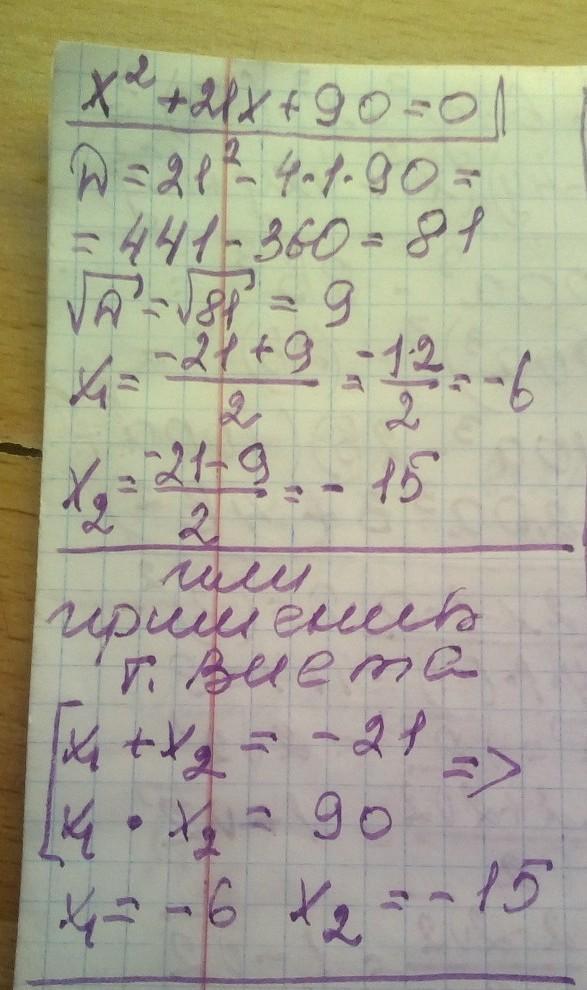 x² + 21x + 90 = 0
D = 21² - 4·1·90 =
= 441 - 360 = 81
√D = √81 = 9
x₁ = (-21+9)/2 = -12/2 = -6
x₂ = (-21-9)/2 = -15
или
применив
т. Виета
[x₁ + x₂ = -21
x₁ · x₂ = 90 =>
x₁ = -6 x₂ = -15